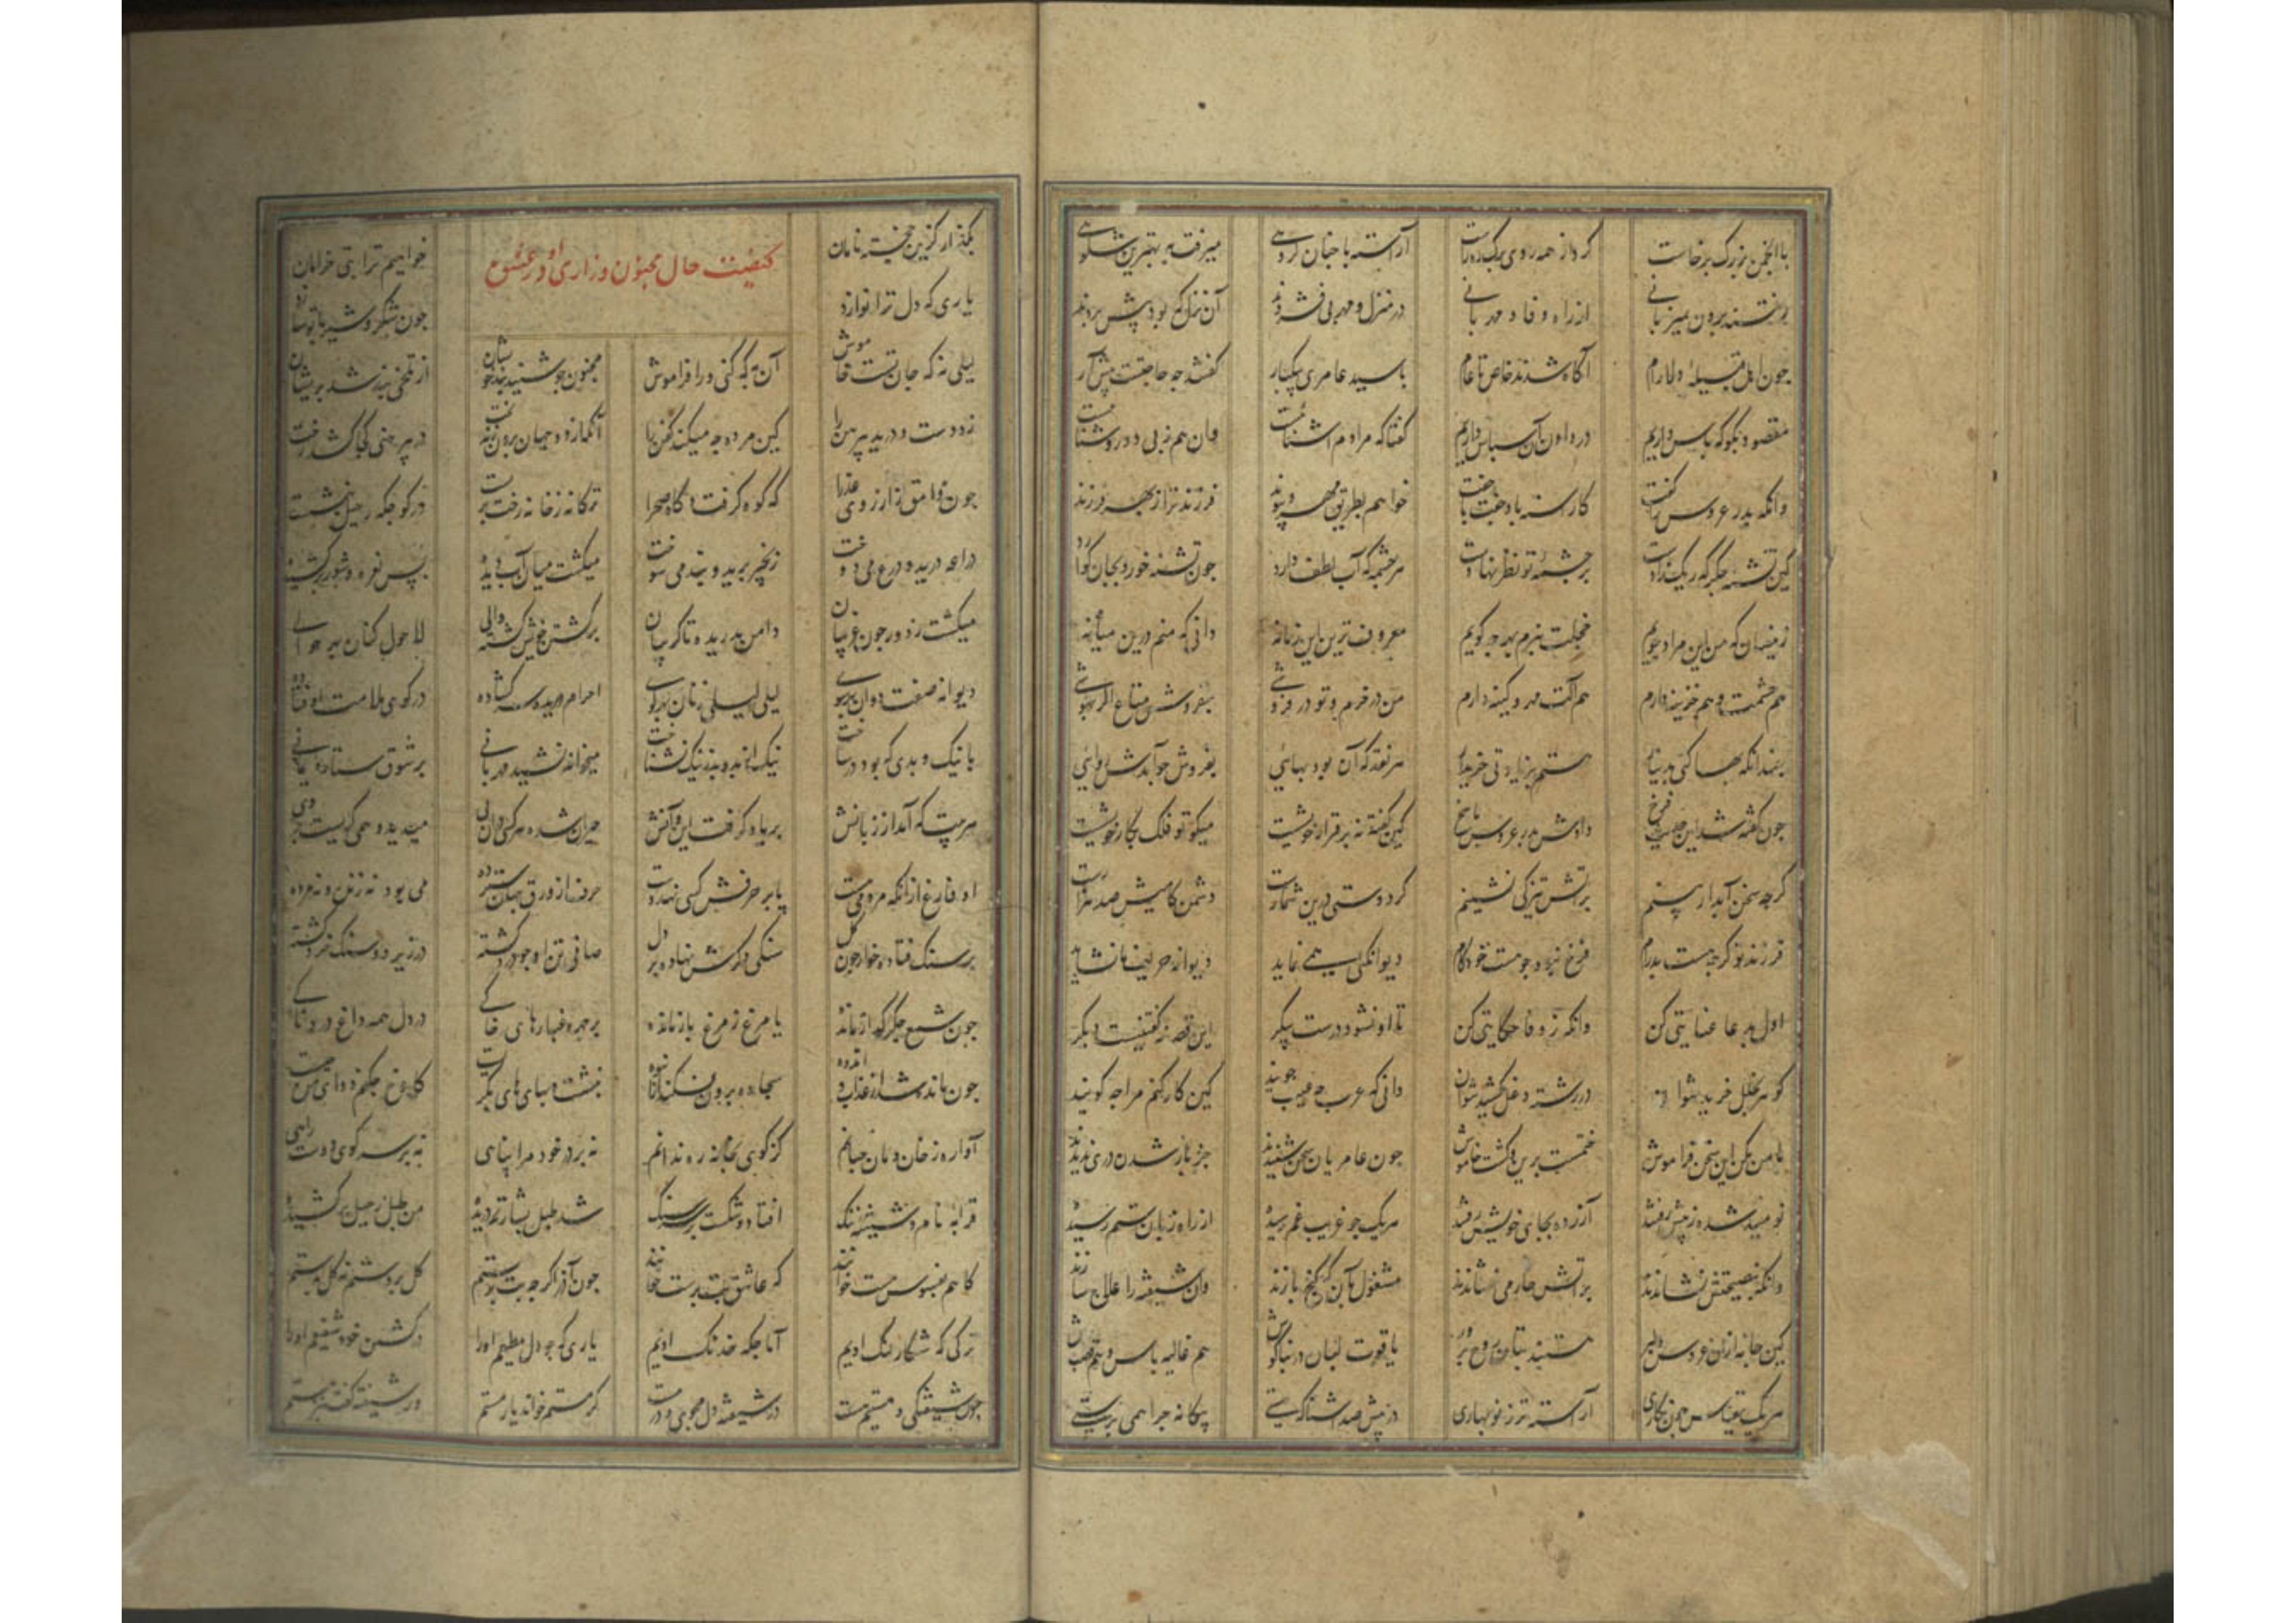 با انجمنی بزرک برخاست کرد از همه روی برک ره راست آراسته با جنان کروهی میرفت به بهترین شکوهی
رفتند برون بمیزبانی از راه وفا و مهربانی در منزل و مهر پی فشردند آن نزل که بود پیش بردند
جون اهل قبیله دلارام آکاه شدند خاص تا عام با سید عامری بیکبار کفتند جه حاجتست پیش آر
مقصود بکو که پاس داریم در دادن آن سپاس داریم کفتا که مرادم آشنائیست وان هم ز پی دو روشنائیست
وانکه بپدر عروس را کفت کاراسته باد جفت با جفت خواهم بطریق مهر و پیوند فرزند ترا ز بهر فرزند
کین تشنه جکر که ریک زادست بر جشمه تو نظر نهادست هر جشمه که آب لطف دارد جون تشنه خورد بجان کوارد
زینسان که من این مراد جویم خجلت نبرم بهر جه کویم معروف ترین این زمانه دانی که منم درین میانه
هم حشمت و هم خزینه دارم هم آلت مهر و کینه دارم من در خرم و تو در فروشی بفروش متاع اکر بهوشی
جندانکه بها کنی پدیدار هستم بزیادتی خریدار هر نقد که آن بود بهایی بفروش جو آمدش روایی
جون کفته شد این حدیث فرخ دادش پدر عروس پاسخ کین کفته نه بر قرار خویشست میکو تو فلک بکار خویشست
کرجه سخن آبدار بینم بر آتش تیز کی نشینم کر دوستی درین شمارست دشمن کامیش صد هزارست
فرزند تو کرجه هست پدرام فرخ نبود جو هست خودکام دیوانکیی همی نماید دیوانه حریف ما نشاید
اول بدعا عنایتی کن وانکه ز وفا حکایتی کن تا او نشود درست پیکر این قصه نه کفتنیست دیکر
کوهر بخلل خرید نتوان در رشته خلل کشید نتوان دانی که عرب جه عیب جویند کین کار کنم مرا جه کویند
با من بکن این سخن فراموش ختمست برین و کشت خاموش جون عامریان سخن شنیدند جز باز شدن دری ندیدند
نومید شده ز پیش رفتند آزرده بجای خویش رفتند هر یک جو غریب غم رسیده از راه زبان ستم رسیده
وانکه بنصیحتش نشاندند بر آتش خار می فشاندند مشغول بآن که کنج بازند وان شیفته را علاج سازند
کین جا به ازان عروس دلبر هستند بتان روح پرور یاقوت لبان در بناکوش هم غالیه پاش و هم قصب پوش
هر یک بقیاس جون نکاری آراسته تر ز نوبهاری در پیش صد آشنا که هستی بیکانه جرا همی پرستی
بکذار کزین خجسته نامان خواهیم ترا بتی خرامان
کیفیت حال مجنون و زاری او در عشق
یاری که دل ترا نوازد جون شکر و شیر با تو سازد
لیلی نه که جان تست خاموش آن به که کنی ورا فراموش مجنون جو شنید پند خویشان از تلخی پند شد پریشان
زد دست و درید پیرهن را کین مرده جه میکند کفن را آنکز دو جهان برون زند تخت در پیرهنی کجا کشد رخت
جون وامق از آرزوی عذرا که کوه کرفت و کاه صحرا ترکانه ز خانه رخت بربست در کوجکه رحیل بنشست
دراعه درید و درع میدوخت زنجیر برید و بند می سوخت میکشت میان آب دیده
میکشت ز دور جون غریبان دامن بدریده تا کریبان بر کشتن خویش کشته والی لاحول کنان بهر حوالی
دیوانه صفت دوان بهر سوی لیلی لیلی زنان بهر کوی احرام دریده سر کشاده در کوی ملامت اوفتاده
با نیک و بدی که بود در ساخت نیک از بد و بد ز نیک نشناخت میخواند نشید مهربانی بر شوق ستاره یمانی
هر بیت که آمد از زبانش بر یاد کرفت این و آنش حیران شده هر کسی دران پی میدید و همی کریست بر وی
او فارغ ازانکه مردمی هست یا بر حرفش کسی نهد دست حرف از ورق جهان سترده می بود نه زنده و نه مرده
بر سنک فتاده خوار جون کل سنکی دکرش نهاده بر دل صافی تن او جو درد کشته در زیر دو سنک خرد کشته
جون شمع جکر کداز مانده یا مرغ ز مرغ باز مانده بر جهره غبارهای خاکی در دل همه داغ دردناکی
جون مانده شد از عذاب و اندوه سجاده برون فکند از انبوه بنشست و بهای های بکریست کاوخ جکنم دوای من جیست
آواره ز خان و مان جنانم کز کوی بخانه ره ندانم نه بر در خود مرا پناهی نه بر سر کوی دوست راهی
قرابه نام و شیشه ننک افتاد و شکست بر سر سنک شد طبل بشارتم دریده من طبل رحیل برکشیده
که عاشق بت پرست خوانند
ترکی که شکار لنک اویم آماجکه خدنک اویم یاری که جو دل مطیعم او را در کشتن خود شفیعم او را
جون شیفتکی و مستیم هست در شیفته دل مجوی و در مست کر مستم خواند یار مستم ور شیفته کفت نیز هستم